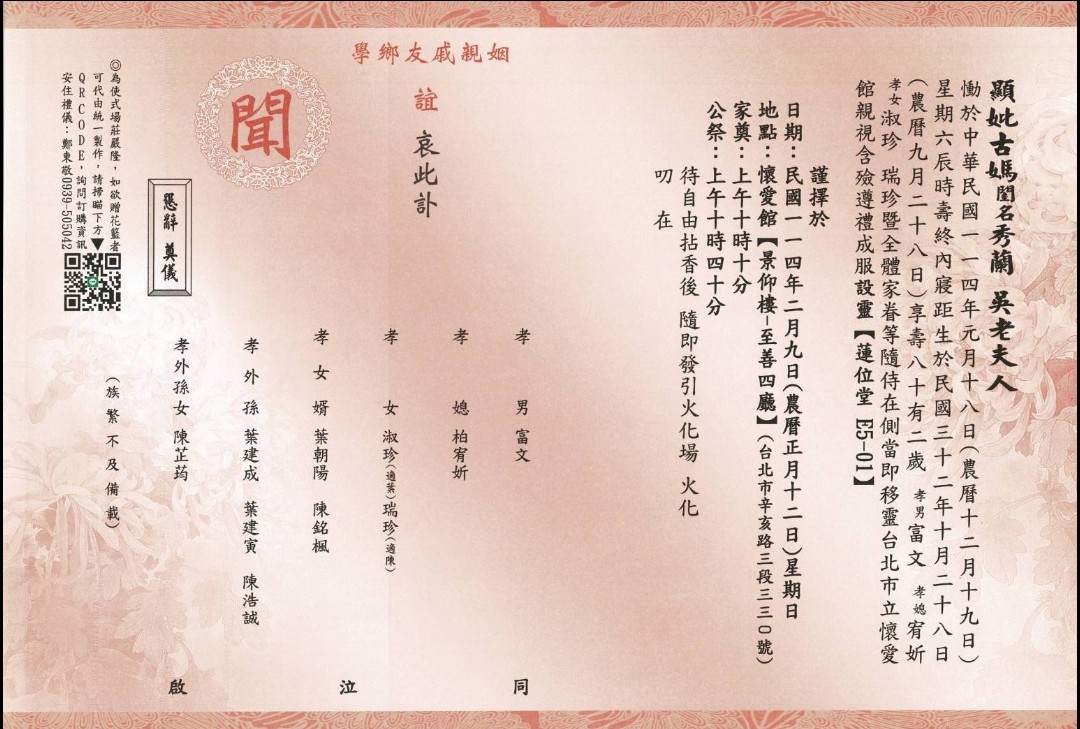 顯妣古媽閨名秀蘭 吳老夫人
慟於中華民國一一四年元月十八日(農曆十二月十九日)
星期六辰時壽終內寢距生於民國三十二年十月二十八日
(農曆九月二十八日)享壽八十有二歲 孝男富文 孝媳宥妡
孝女淑珍 瑞珍暨全體家眷等隨侍在側當即移靈台北市立懷愛
館親視含殮遵禮成服設靈【蓮位堂 E5-01】
謹擇於
日期：民國一一四年二月九日(農曆正月十二日)星期日
地點：懷愛館【景仰樓-至善四廳】(台北市辛亥路三段三三0號)
家奠：上午十時十分
公祭：上午十時四十分
待自由拈香後 隨即發引火化場 火化
叨 在
姻親戚友鄉學
誼
哀此訃
聞
孝男 富文
孝媳 柏宥妡
孝女 淑珍(適葉)瑞珍(適陳)
孝女婿 葉朝陽 陳銘楓
孝外孫 葉建成 葉建寅 陳浩誠
孝外孫女 陳芷荺
同
泣
啟
(族繁不及備載)
懇辭 奠儀
◎為使式場莊嚴隆，如欲贈花籃者
可代由統一製作，請掃瞄下方▼
QRCODE，詢問訂購資訊
安住禮儀：鄭東敬0939-505042